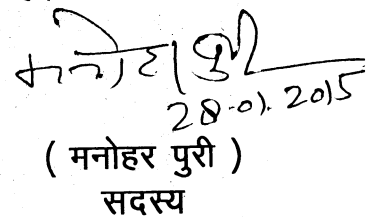 मनोहर पुरी
28.01.2015
( मनोहर पुरी )
सदस्य